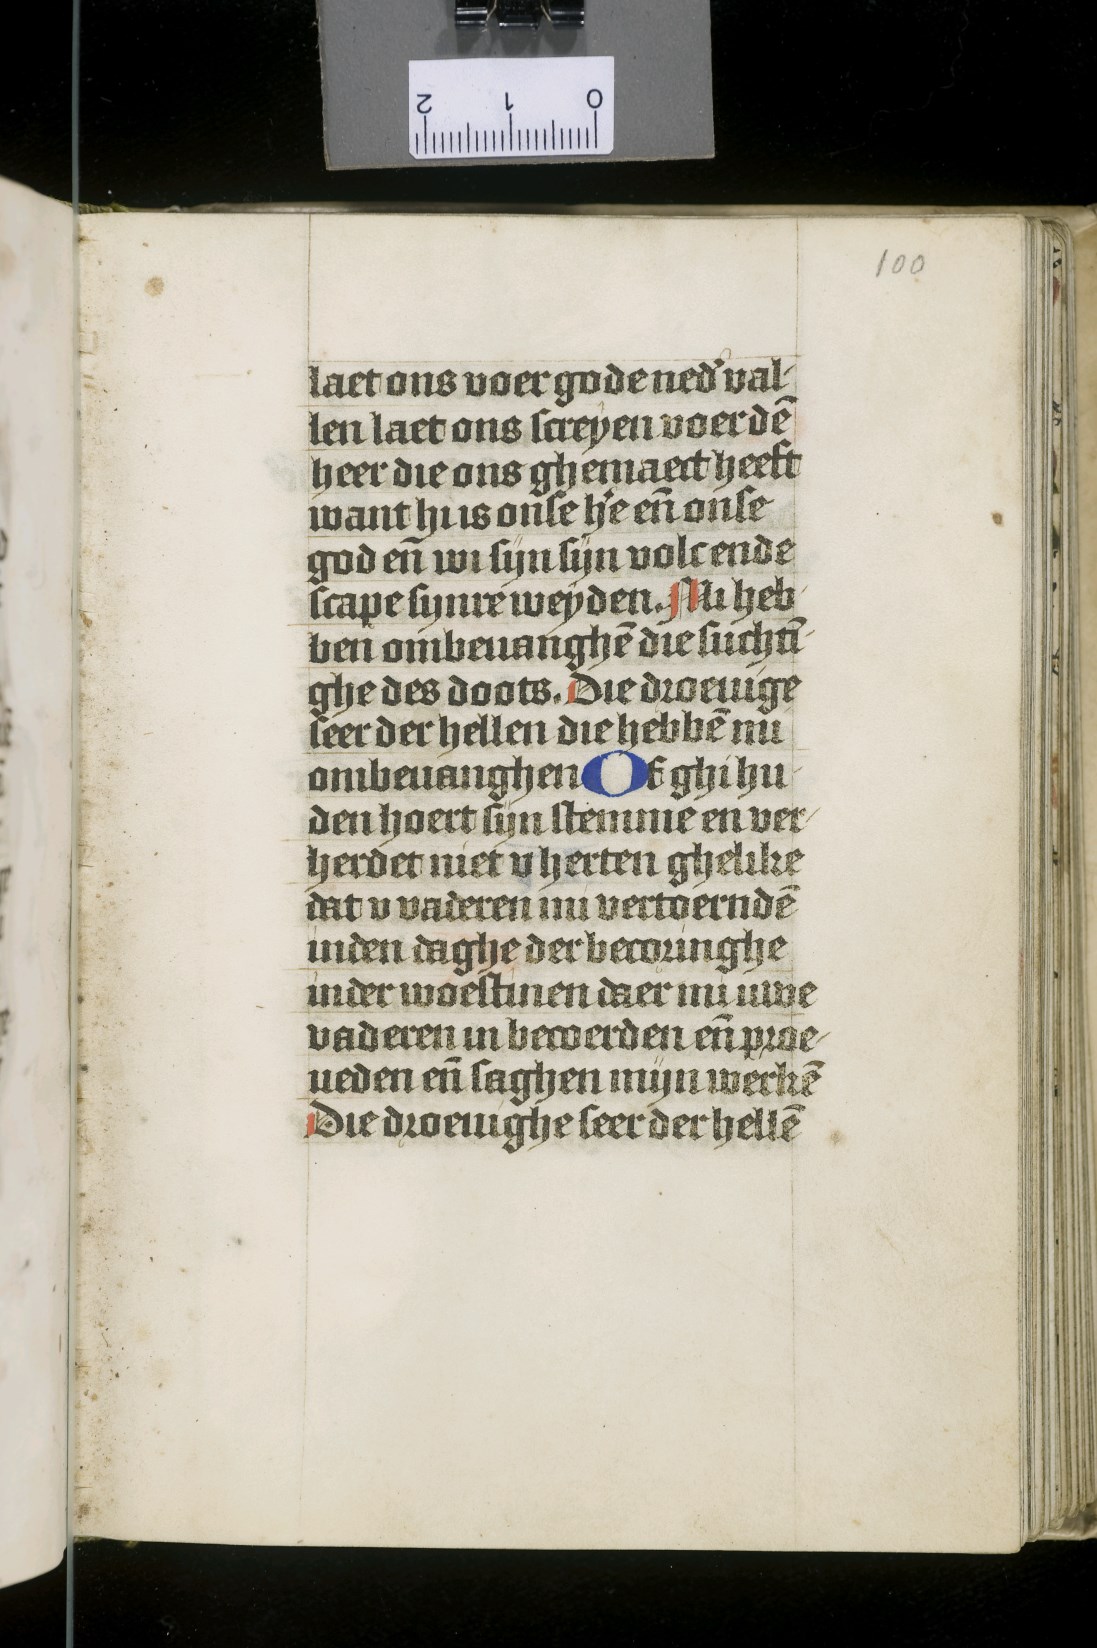 2 1 0
100
laet ons voer gode ned' val-
len laet ons screyen voer dē
heer die ons ghemaect heeft
want hi is onse h'e en̄ onse
god en̄ wi sijn sijn volc ende
scape synre weyden. Mi heb-
ben ombeuanghē die suchtī-
ghe des doots. Die droeuige
seer der hellen die hebbē mi
ombeuanghen Of ghi hu-
den hoert sijn stemme en ver-
herdet niet v herten ghelike
dat v vaderen mi vertoerndē
inden daghe der becoringhe
inder woestinen daer mi uwe
vaderen in becoerden en̄ proe-
ueden en̄ saghen mijn werkē
Die droeuighe seer der hellē